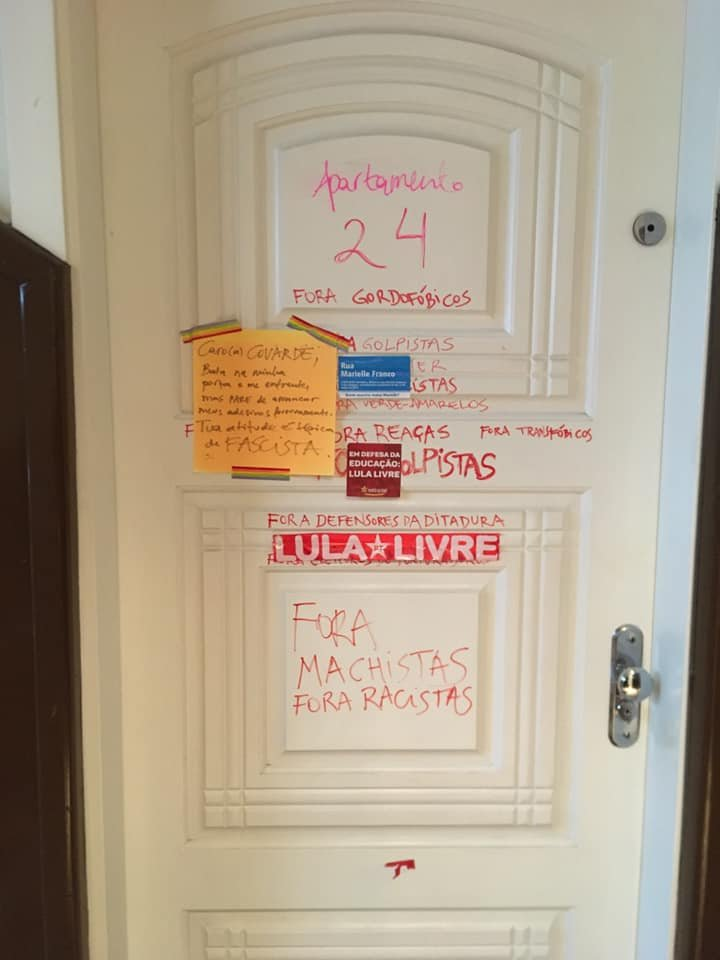 Apartamento
24
FORA GORDOFÓBICOS
GOLPISTAS
Caro(a) COVARDE,
Bata na minha
porta e me enfrente,
mas PARE de arrancar
meus adesivos porcamente.
Tua atitude é típica
de FASCISTA.
Rua
Marielle Franco
ER
ISTAS
VERDE-AMARELOS
ORA REAÇAS
FORA TRANSFÓBICOS
EM DEFESA DA
EDUCAÇÃO:
LULA LIVRE
OLPISTAS
FORA DEFENSORES DA DITADURA
LULA LIVRE
FORA
MACHISTAS
FORA RACISTAS